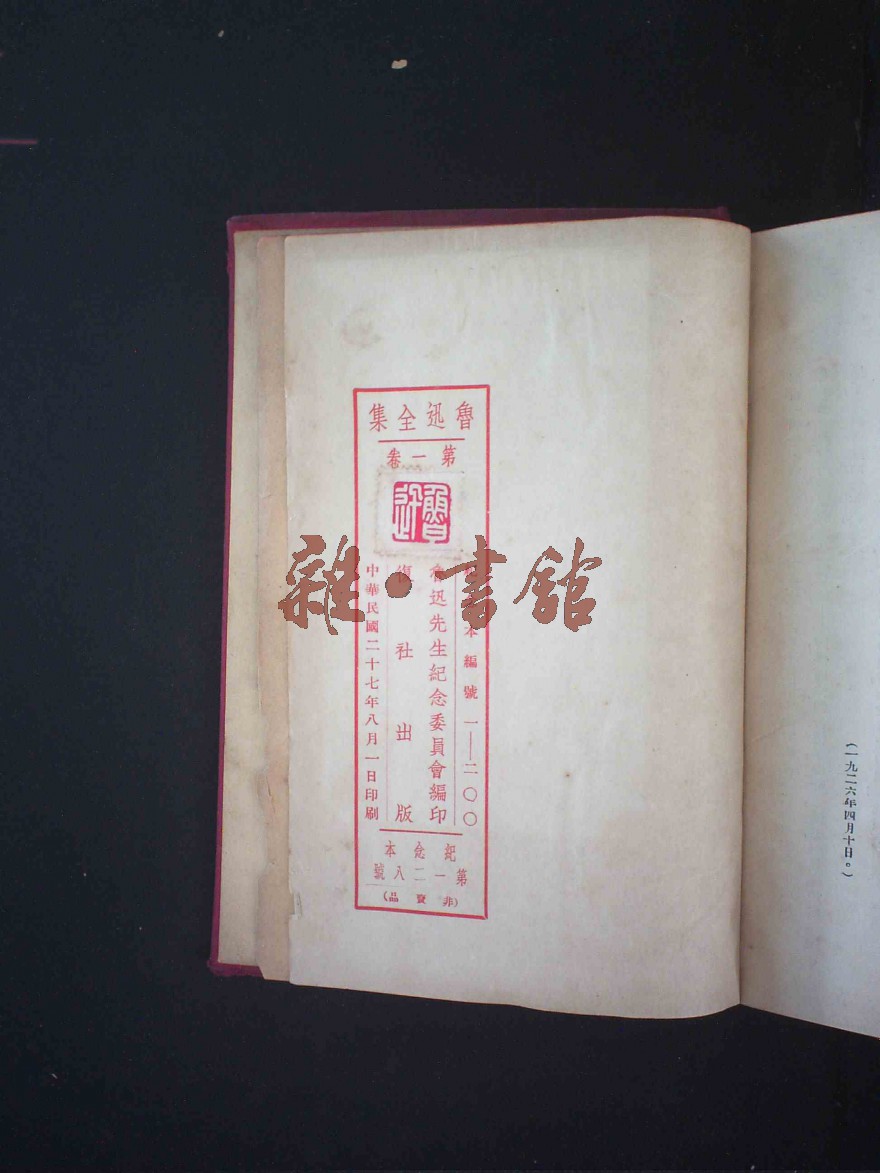 魯迅全集
第一卷
魯迅
本編號 一——二〇〇
魯迅先生紀念委員會編印
復社出版
中華民國二十七年八月一日印刷
紀念本
第一二八號
(非賣品)
雜·書館
(一九二六年四月十日。)